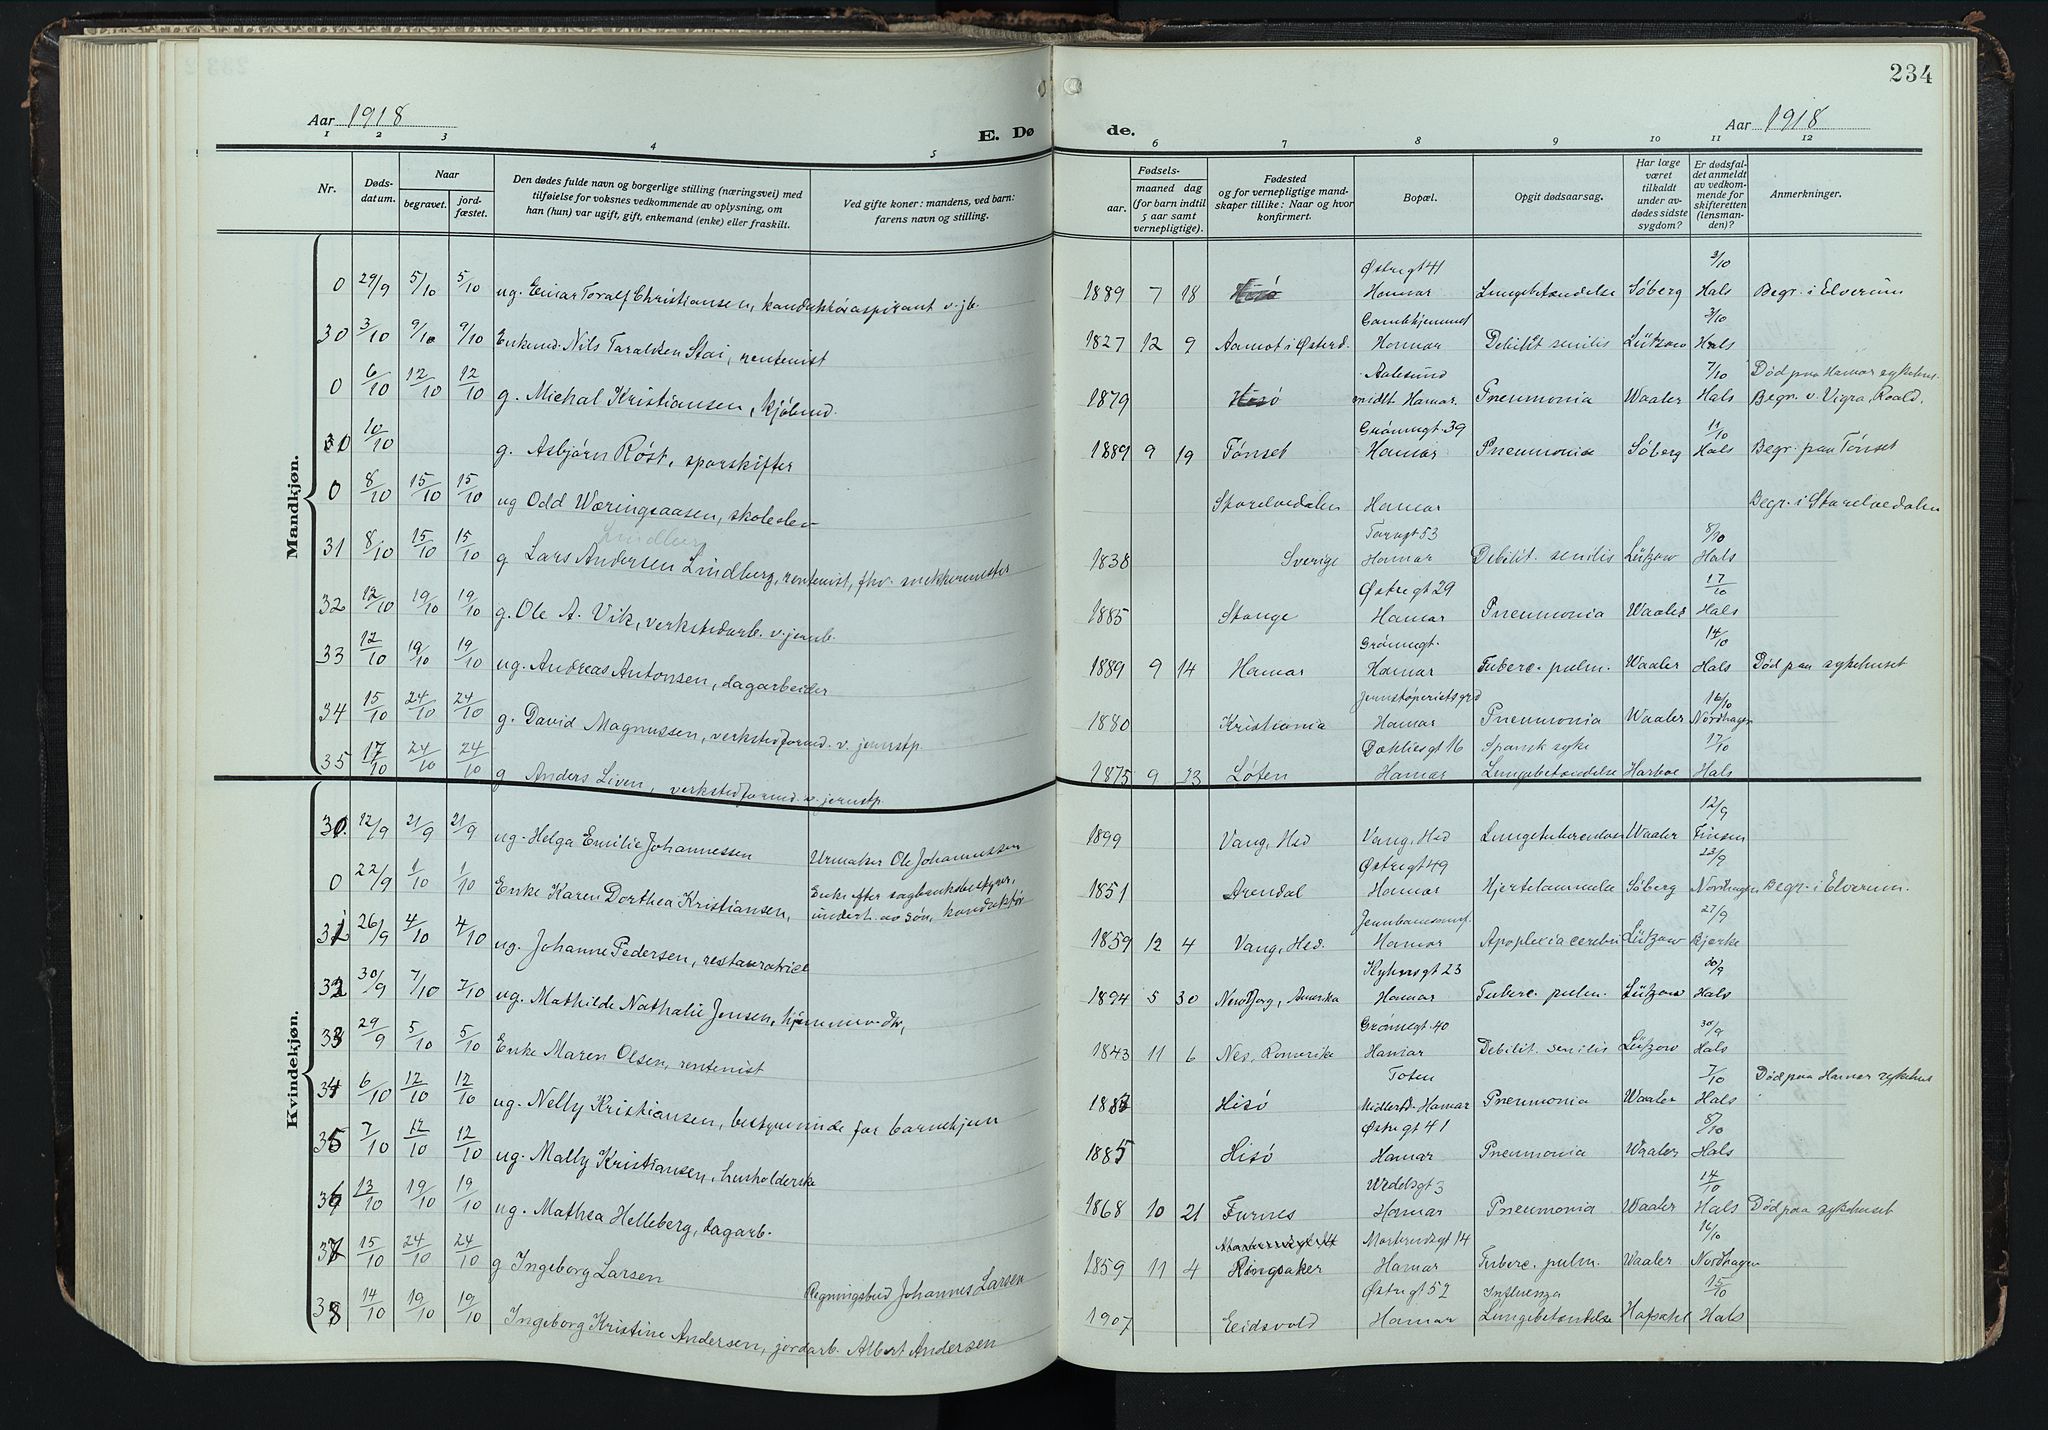 234
Aar 1918
E. Dø de.
Aar 1918
1 2 3 4 5 6 7 8 9 10 11 12
Nr.
Døds-
datum.
Naar
begravet.
jord-
fæstet.
Den dødes fulde navn og borgerlige stilling (næringsvei) med
tilføielse for voksnes vedkommende av oplysning, om
han (hun) var ugift, gift, enkemand (enke) eller fraskilt.
Ved gifte koner: mandens, ved barn:
farens navn og stilling.
Fødsels-
aar.
maaned dag
(for barn indtil
5 aar samt
vernepligtige).
Fødested
og for vernepligtige mand-
skaper tillike: Naar og hvor
konfirmert.
Bopæl.
Opgit dødsaarsag.
Har læge
været
tilkaldt
under av-
dødes sidste
sygdom?
Er dødsfal-
det anmeldt
av vedkom-
mende for
skifteretten
(lensman-
den)?
Anmerkninger.
Mandkjøn.
Østregt 41 3/10
0 29/9 5/10 5/10 ug. Einar Toralf Christiansen, konduktøraspirant v. jb. 1889 7 18 Hisø Hamar Lungebetændelse Søberg Hals Begr. i Elverum
Gamlehjemmet 3/10
30 3/10 9/10 9/10 Enkemd. Nils Taraldsen Stai, rentenist 1827 12 9 Aamot i Østerd. Hamar Debilit senilis Lützow Hals
Aalesund 7/10 Død paa Hamar sykehus.
0 6/10 12/10 12/10 g. Michal Kristiansen, kjøbmd. 1879 Hisø midlt. Hamar. Pneumonia Waaler Hals Begr. v. Vigra, Roald.
Grønnegt. 39 11/10
0 10/10 g. Asbjørn Røst, sporskifter 1889 9 19 Tønset Hamar Pneumonia Søberg Hals Begr. paa Tønset
0 8/10 15/10 15/10 ug Odd Wæringsaasen, skoleelev Storelvedalen Hamar Begr. i Storelvedalen
Lindberg Torvgt 53 8/10
31 8/10 15/10 15/10 g Lars Andersen Lindberg, rentenist, fhv. snekkermester 1838 Sverige Hamar Debilit. senilis Lützow Hals
Østregt 29 17/10
32 12/10 19/10 19/10 g. Ole A. Vik, verkstedarb. v. jernb. 1885 Stange Hamar Pneumonia Waaler Hals
Grønnegt. 14/10
33 12/10 19/10 19/10 ug. Andreas Antonsen, dagarbeider 1889 9 14 Hamar Hamar Tuberc. pulm. Waaler Hals Død paa sykehuset
Jernstøperietsgrd 16/10
34 15/10 24/10 24/10 g. David Magnussen, verkstedformd. v. jernstp. 1880 Kristiania Hamar Pneumonia Waaler Nordhagen
Spansk syke 17/10
35 17/10 24/10 24/10 g Anders Liven, verkstedformd. v. jernstp. 1875 9 23 Løten Hamar Lungebetændelse Harboe Hals
Kvindekjøn.
12/9
30. 12/9 21/9 21/9 ug. Helga Emilie Johannessen Urmaker Ole Johannessen 1899 Vang, Hed Vang, Hed Lungetuberculose Waaler Finsen
Østregt 49 23/9
0 22/9 1/10 1/10 Enke Karen Dorthea Kristiansen, Enke efter sagbruksbestyrer, 1851 Arendal Hamar Hjertelammelse Søberg Nordhagen Begr. i Elverum.
undert. av søn, konduktør
27/9
31 26/9 4/10 4/10 ug. Johanne Pedersen, restauratrice 1859 12 4 Vang, Hed. Hamar Apoplexia cerebri Lützow Bjerke
30/9
32 30/9 7/10 7/10 ug. Mathilde Nathalie Jensen, hjemmev. dtr, 1894 5 30 Amerika Hamar Tuberc. pulm. Lützow Hals
Grønnegt. 40 30/9
33 29/9 5/10 5/10 Enke Maren Olsen, rentenist 1843 11 6 Nes, Romerike Hamar Debilit. senilis Lützow Hals
Toten 7/10 Død paa Hamar sykehus
34 6/10 12/10 12/10 ug. Nelly Kristiansen, bestyrerinde for barnehjem 1883 Hisø Midlertd. Hamar Pneumonia Waaler Hals
Østregt 41 8/10
35 7/10 12/10 12/10 ug. Mally Kristiansen, husholderske 1885 Hisø Hamar Pneumonia Waaler Hals
Wedelsgt 3 14/10
36 13/10 19/10 19/10 ug. Mathea Helleberg, dagarb. 1868 10 21 Furnes Hamar Pneumonia Waaler Hals Død paa sykehuset
Morterudsgt 14 16/10
37 15/10 24/10 24/10 g Ingeborg Larsen Regningsbud Johannes Larsen 1859 11 4 Ringsaker Hamar Tuberc. pulm. Waaler Nordhagen
Østregt 52 Influenza 15/10
38 14/10 19/10 19/10 Ingeborg Kristine Andersen, jordarb. Albert Andersen 1907 Eidsvold Hamar Lungebetændelse Hafsahl Hals